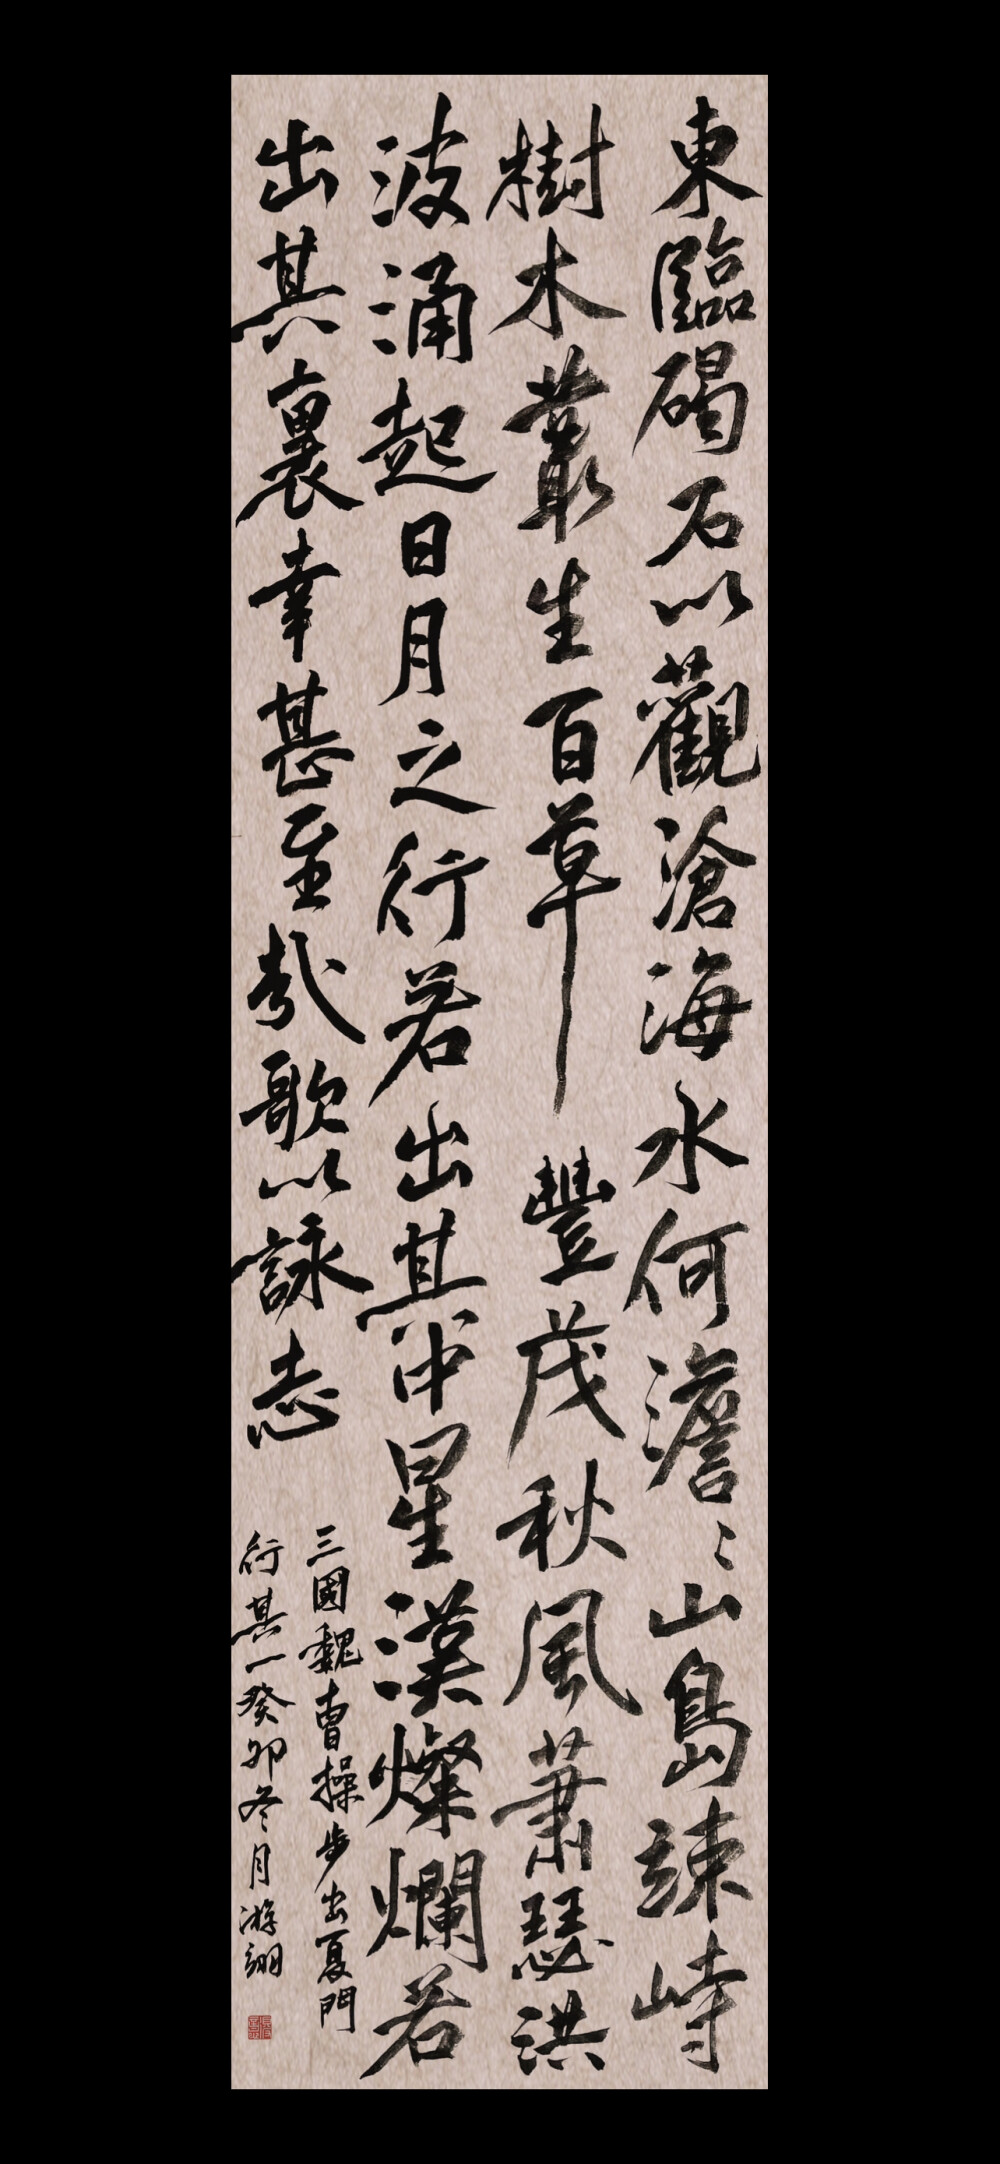 東臨碣石以觀滄海水何澹〻山島諫峙
樹木叢生百草豐茂秋風蕭瑟洪
波涌起日月之行若出其中星漢燦爛若
出其裏幸甚至哉歌以詠志
三國魏曹操步出夏門
行其一癸卯冬月游翃